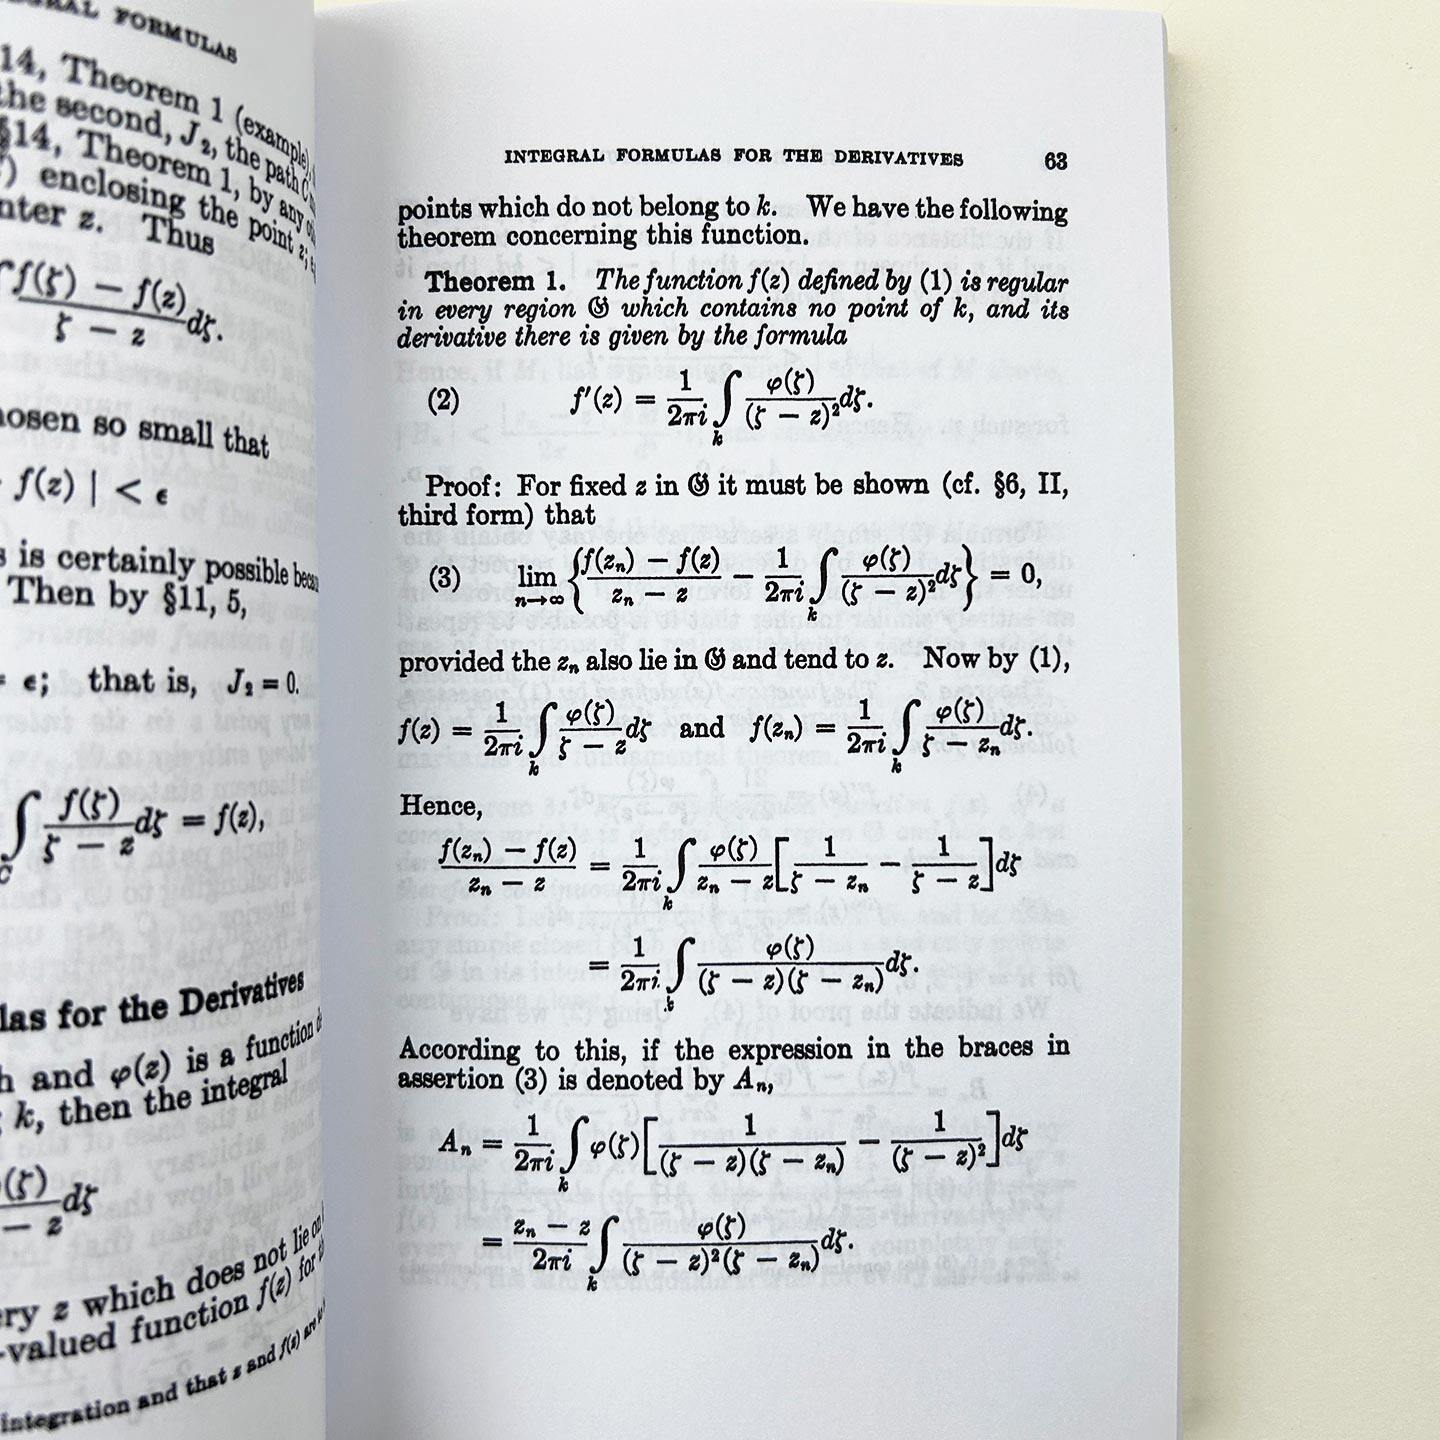 GRAL FORMULAS
14, Theorem 1 (example),
the second, J₂, the path C
§14, Theorem 1, by any
) enclosing the point z;
nter z. Thus
f(ζ) − f(z)
ζ − z dζ.
hosen so small that
f(z) | < ϵ
s is certainly possible
Then by §11, 5,
= ϵ; that is, J₂ = 0.
∫_C f(ζ)/(ζ − z) dζ = f(z),
las for the Derivatives
h and φ(z) is a function
k, then the integral
(ζ)/( − z) dζ
ery z which does not lie on
-valued function f(z) for
integration and that z and f(z) are
INTEGRAL FORMULAS FOR THE DERIVATIVES 63
points which do not belong to k. We have the following
theorem concerning this function.
Theorem 1. The function f(z) defined by (1) is regular
in every region 𝔊 which contains no point of k, and its
derivative there is given by the formula
(2) f′(z) = 1/(2πi) ∫_k φ(ζ)/(ζ − z)² dζ.
Proof: For fixed z in 𝔊 it must be shown (cf. §6, II,
third form) that
(3) lim_{n→∞} { (f(zₙ) − f(z))/(zₙ − z) − 1/(2πi) ∫_k φ(ζ)/(ζ − z)² dζ } = 0,
provided the zₙ also lie in 𝔊 and tend to z. Now by (1),
f(z) = 1/(2πi) ∫_k φ(ζ)/(ζ − z) dζ and f(zₙ) = 1/(2πi) ∫_k φ(ζ)/(ζ − zₙ) dζ.
Hence,
(f(zₙ) − f(z))/(zₙ − z) = 1/(2πi) ∫_k φ(ζ)/(zₙ − z) [ 1/(ζ − zₙ) − 1/(ζ − z) ] dζ
= 1/(2πi) ∫_k φ(ζ)/((ζ − z)(ζ − zₙ)) dζ.
According to this, if the expression in the braces in
assertion (3) is denoted by Aₙ,
Aₙ = 1/(2πi) ∫_k φ(ζ) [ 1/((ζ − z)(ζ − zₙ)) − 1/(ζ − z)² ] dζ
= (zₙ − z)/(2πi) ∫_k φ(ζ)/((ζ − z)²(ζ − zₙ)) dζ.